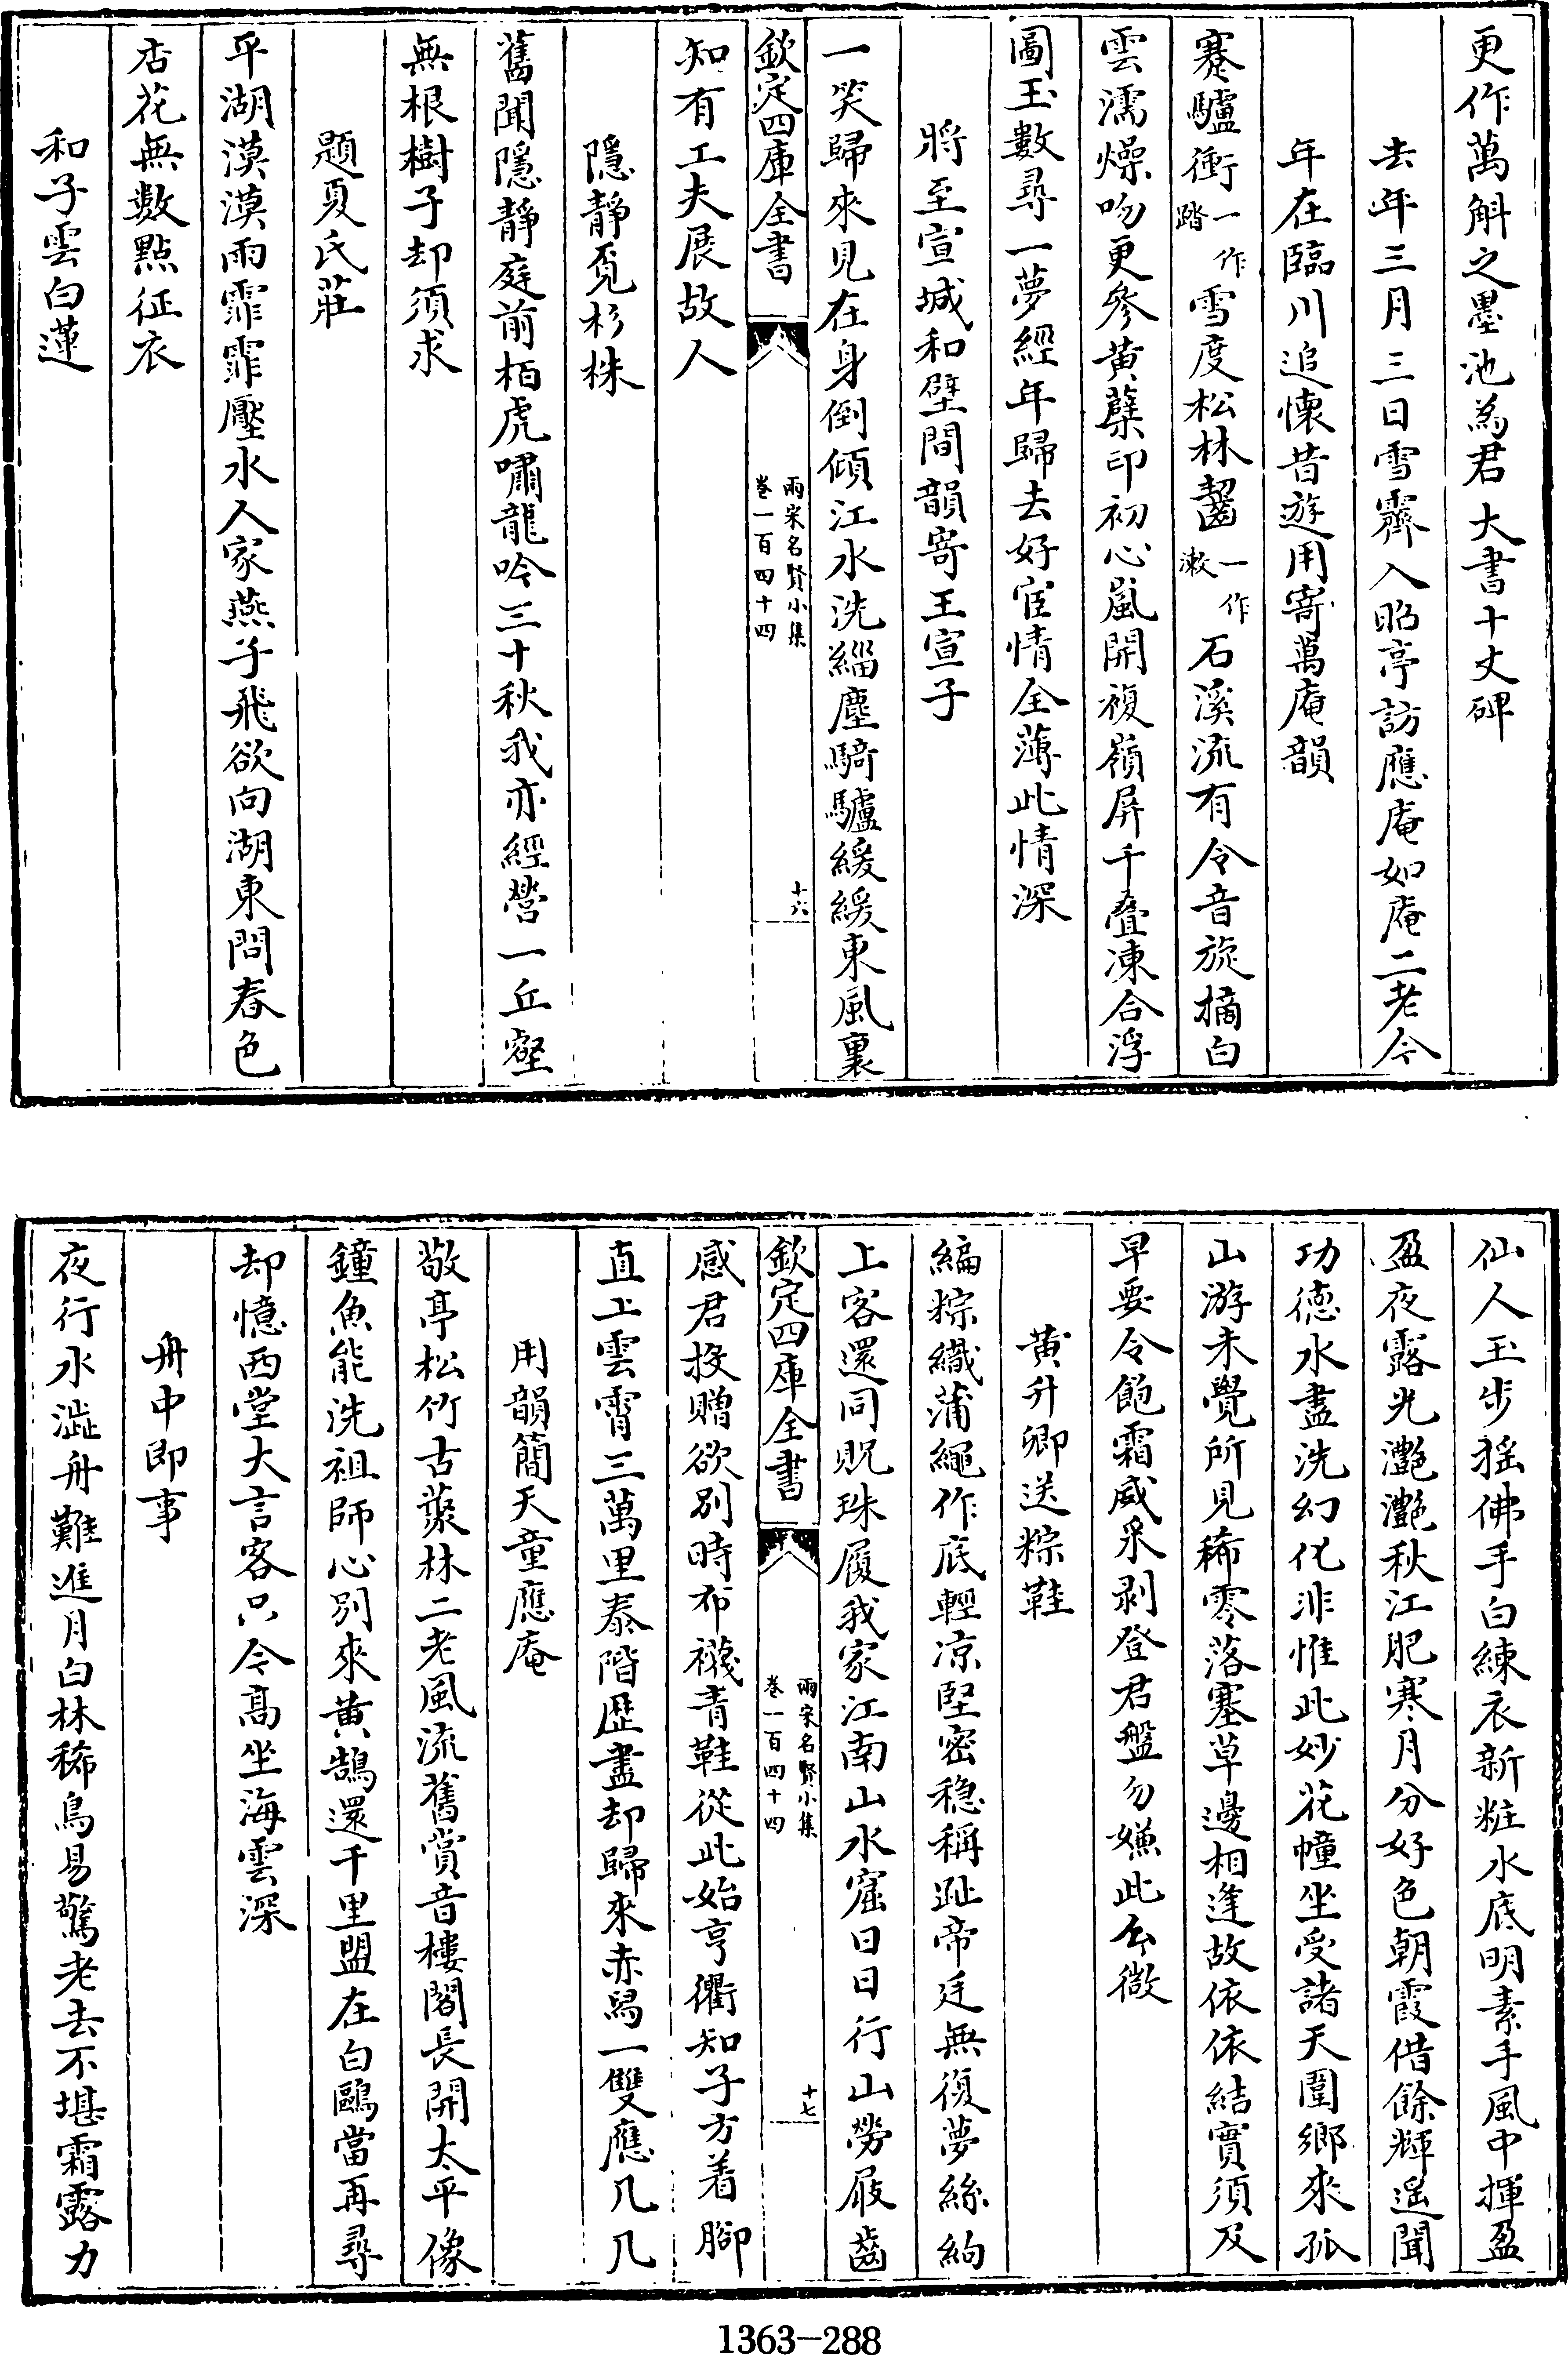 更作萬斛之墨池為君大書十丈碑
去年三月三日雪霽入昭亭訪應庵如庵二老今
年在臨川追懷昔遊用寄萬庵韻
蹇驢衝一作踏雪度松林齧一作漱石溪流有令音旋摘白
雲濡燥吻更參黄蘗印初心嵐開複嶺屏千叠凍合浮
圖玉數尋一夢經年歸去好宦情全薄此情深
將至宣城和壁間韻寄王宣子
一笑歸來見在身倒傾江水洗緇塵騎驢緩緩東風裏
欽定四庫全書
兩宋名賢小集
卷一百四十四
十六
知有工夫展故人
隱靜覓杉株
舊聞隱靜庭前栢虎嘯龍吟三十秋我亦經營一丘壑
無根樹子却須求
題夏氏莊
平湖漠漠雨霏霏壓水人家燕子飛欲向湖東問春色
杏花無數點征衣
和子雲白蓮
仙人玉步摇佛手白練衣新粧水底明素手風中揮盈
盈夜露光灔灔秋江肥寒月分好色朝霞借餘輝遥聞
功徳水盡洗幻化非惟此妙花幢坐受諸天圍鄉來孤
山游未覺所見稀零落塞草邊相逢故依依結實須及
早要令飽霜威采剥登君盤勿嫌此么微
黄升卿送粽鞋
編粽織蒲繩作底輕凉堅密稳稱趾帝廷無復夢絲絇
上客還同貺珠履我家江南山水窟日日行山勞屐齒
欽定四庫全書
兩宋名賢小集
卷一百四十四
十七
感君投贈欲别時布襪青鞋從此始亨衢知子方着脚
直上雲霄三萬里泰階歴盡却歸來赤舄一雙應几几
用韻簡天童應庵
敬亭松竹古叢林二老風流舊賞音樓閣長開太平像
鐘魚能洗祖師心别來黄鵠還千里盟在白鷗當再尋
却憶西堂大言客只今髙坐海雲深
舟中即事
夜行水澁舟難進月白林稀鳥易驚老去不堪霜露力
1363-288